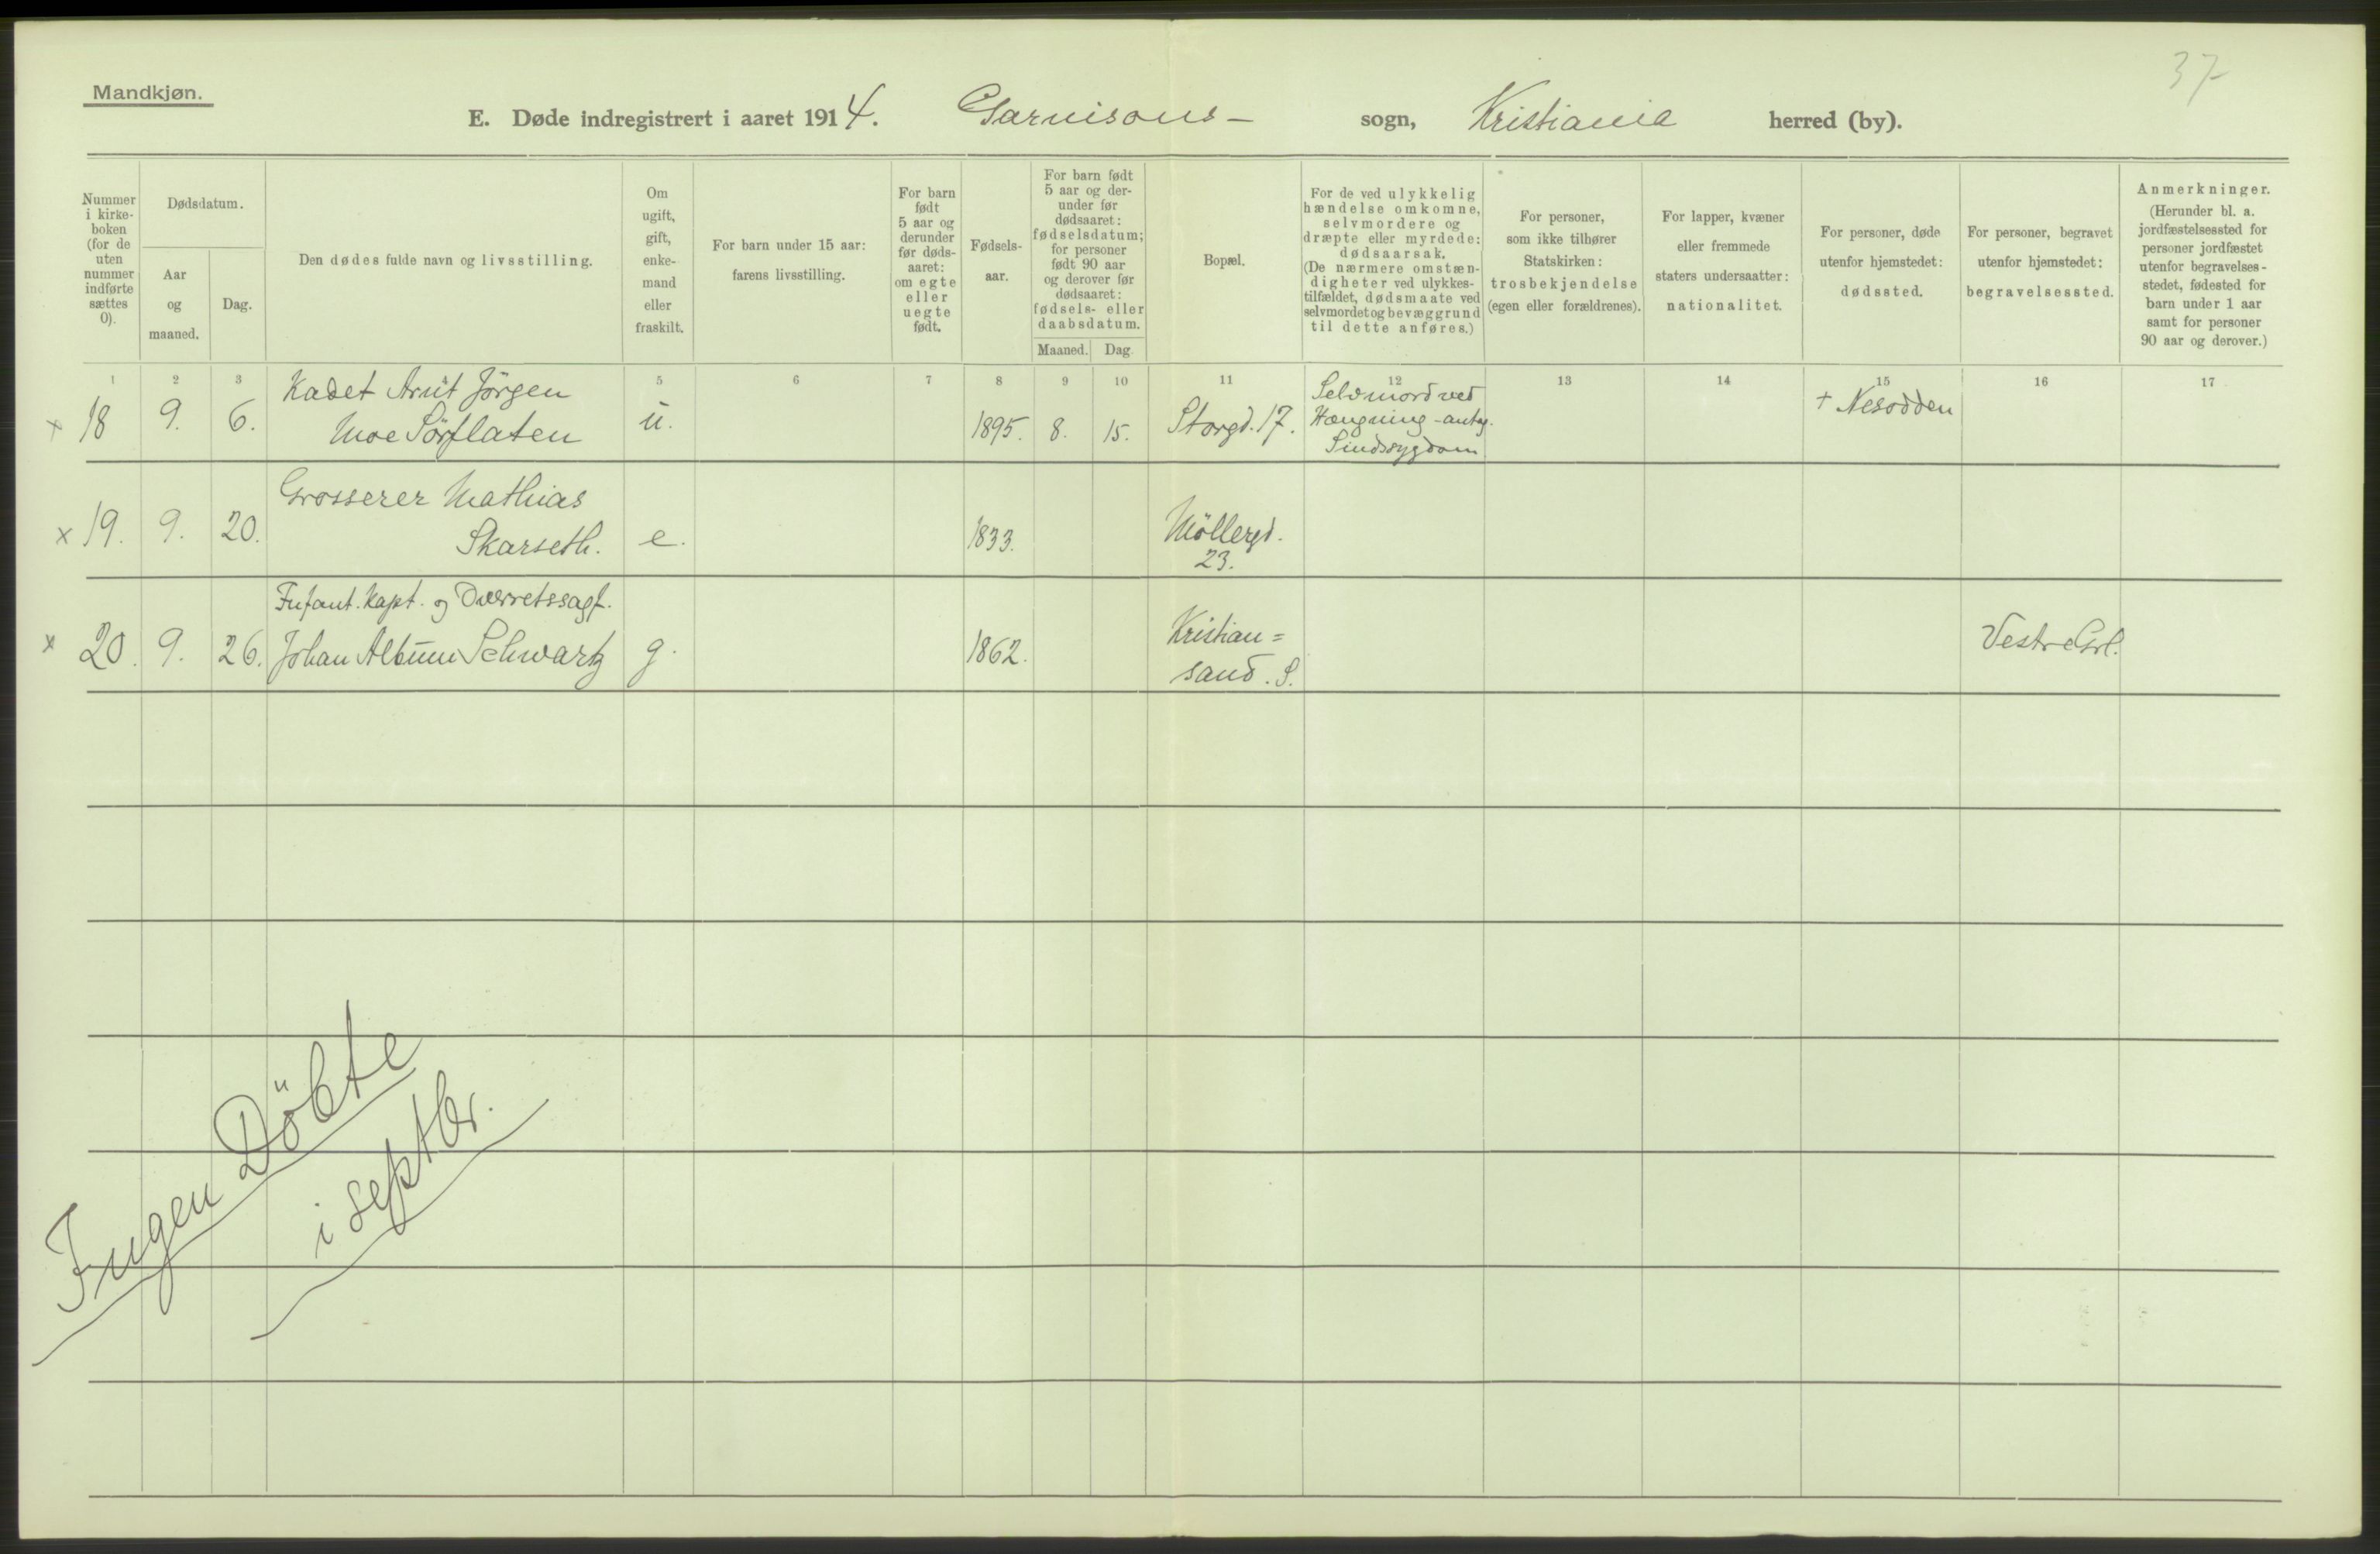 37
Mandkjøn.
E. Døde indregistrert i aaret 1914. Garnisons- sogn, Kristiania herred (by).
Nummer i kirke-boken (for de uten nummer indførte sættes 0).
Dødsdatum.
Aar og maaned.
Dag.
Den dødes fulde navn og livsstilling.
Om ugift, gift, enke-mand eller fraskilt.
For barn under 15 aar: farens livsstilling.
For barn født 5 aar og derunder før døds-aaret: om egte eller uegte født.
Fødsels-aar.
For barn født 5 aar og der-under før dødsaaret: fødselsdatum; for personer født 90 aar og derover før dødsaaret: fødsels- eller daabsdatum.
Maaned. Dag.
Bopæl.
For de ved ulykkelig hændelse omkomne, selvmordere og dræpte eller myrdede: dødsaarsak. (De nærmere omstæn-digheter ved ulykkes-tilfældet, dødsmaate ved selvmordet og bevæggrund til dette anføres.)
For personer, som ikke tilhører Statskirken: trosbekjendelse (egen eller forældrenes).
For lapper, kvæner eller fremmede staters undersaatter: nationalitet.
For personer, døde utenfor hjemstedet: dødssted.
For personer, begravet utenfor hjemstedet: begravelsessted.
Anmerkninger. (Herunder bl. a. jordfæstelsessted for personer jordfæstet utenfor begravelses-stedet, fødested for barn under 1 aar samt for personer 90 aar og derover.)
1 2 3 5 6 7 8 9 10 11 12 13 14 15 16 17
Kadet Arnt Jörgen
x 18 9. 6. Moe Sörflaten u. 1895. 8. 15. Storgd. 17. Selvmord ved
Hængning - antag.
Sindssygdom
+ Nesodden
Grosserer Mathias
x 19. 9. 20. Skarseth. e. 1833. Möllergd.
23.
Infant. Kapt. og Overretssagf.
x 20. 9. 26. Johan Schwartz g. 1862. Kristian=
sand. S.
Vestre Grl.
Ingen Döbte
i septbr.